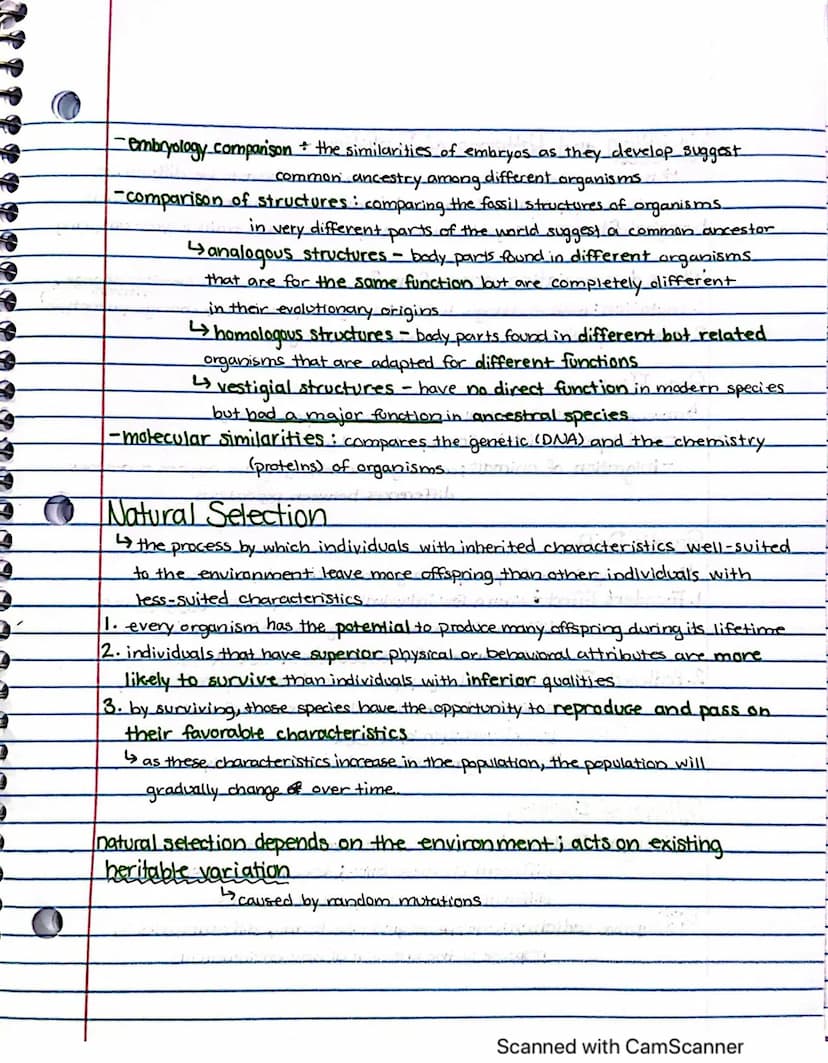 - embryology comparison : the similarities of embryos as they develop suggest
common ancestry among different organisms
- comparison of structures : comparing the fossil structures of organisms
in very different parts of the world suggest a common ancestor
↳ analogous structures - body parts found in different organisms
that are for the same function but are completely different
in their evolutionary origins
↳ homologous structures - body parts found in different but related
organisms that are adapted for different functions
↳ vestigial structures - have no direct function in modern species
but had a major function in ancestral species
- molecular similarities : compares the genetic (DNA) and the chemistry
(proteins) of organisms
Natural Selection
↳ the process by which individuals with inherited characteristics well-suited
to the environment leave more offspring than other individuals with
less-suited characteristics
1. every organism has the potential to produce many offspring during its lifetime
2. individuals that have superior physical or behavioral attributes are more
likely to survive than individuals with inferior qualities
3. by surviving, those species have the opportunity to reproduce and pass on
their favorable characteristics
↳ as these characteristics increase in the population, the population will
gradually change over time.
natural selection depends on the environment; acts on existing
heritable variation
↳ caused by random mutations
Scanned with CamScanner